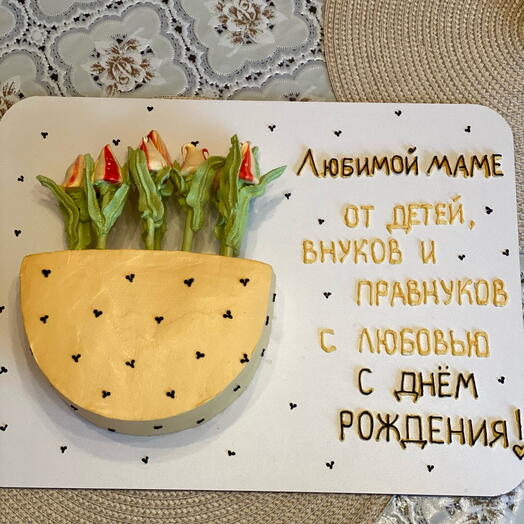 Любимой маме
от детей,
внуков и
правнуков
с любовью
с днём
рождения!